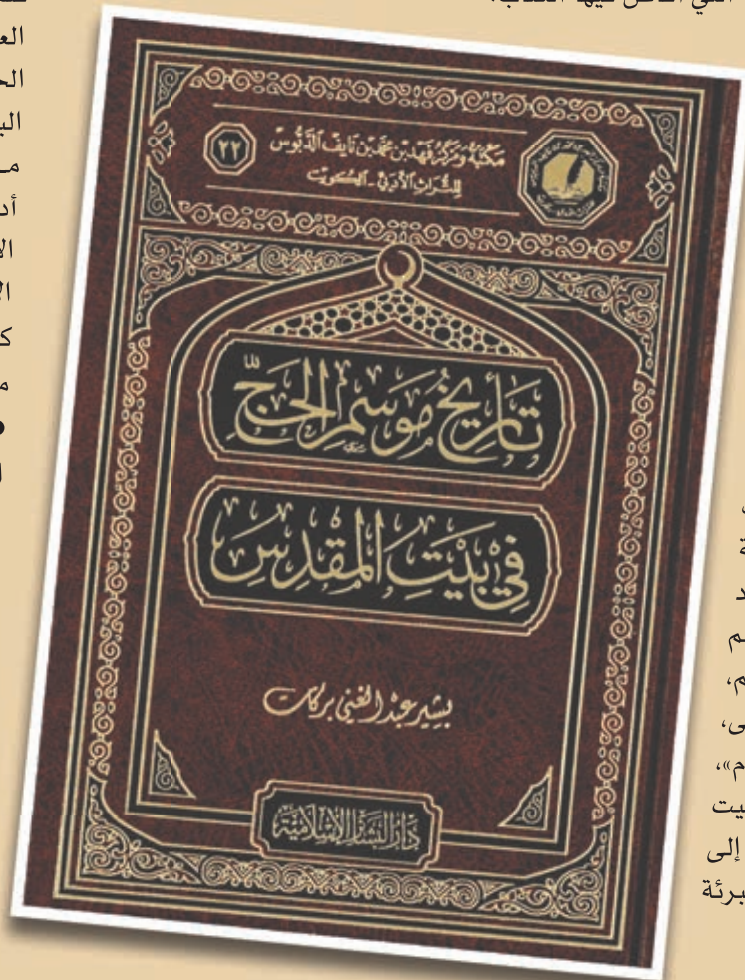 مكتبة ومركز فهد بن محمد بن نايف الدبوس
للتراث الأدبي - الكويت
٢٢
تَأْرِيخُ مَوْسِمِ الحَجِّ
فِي بَيْتِ المَقْدِسِ
بشير عبد الغني بركات
دار البشائر الإسلامية
إلى